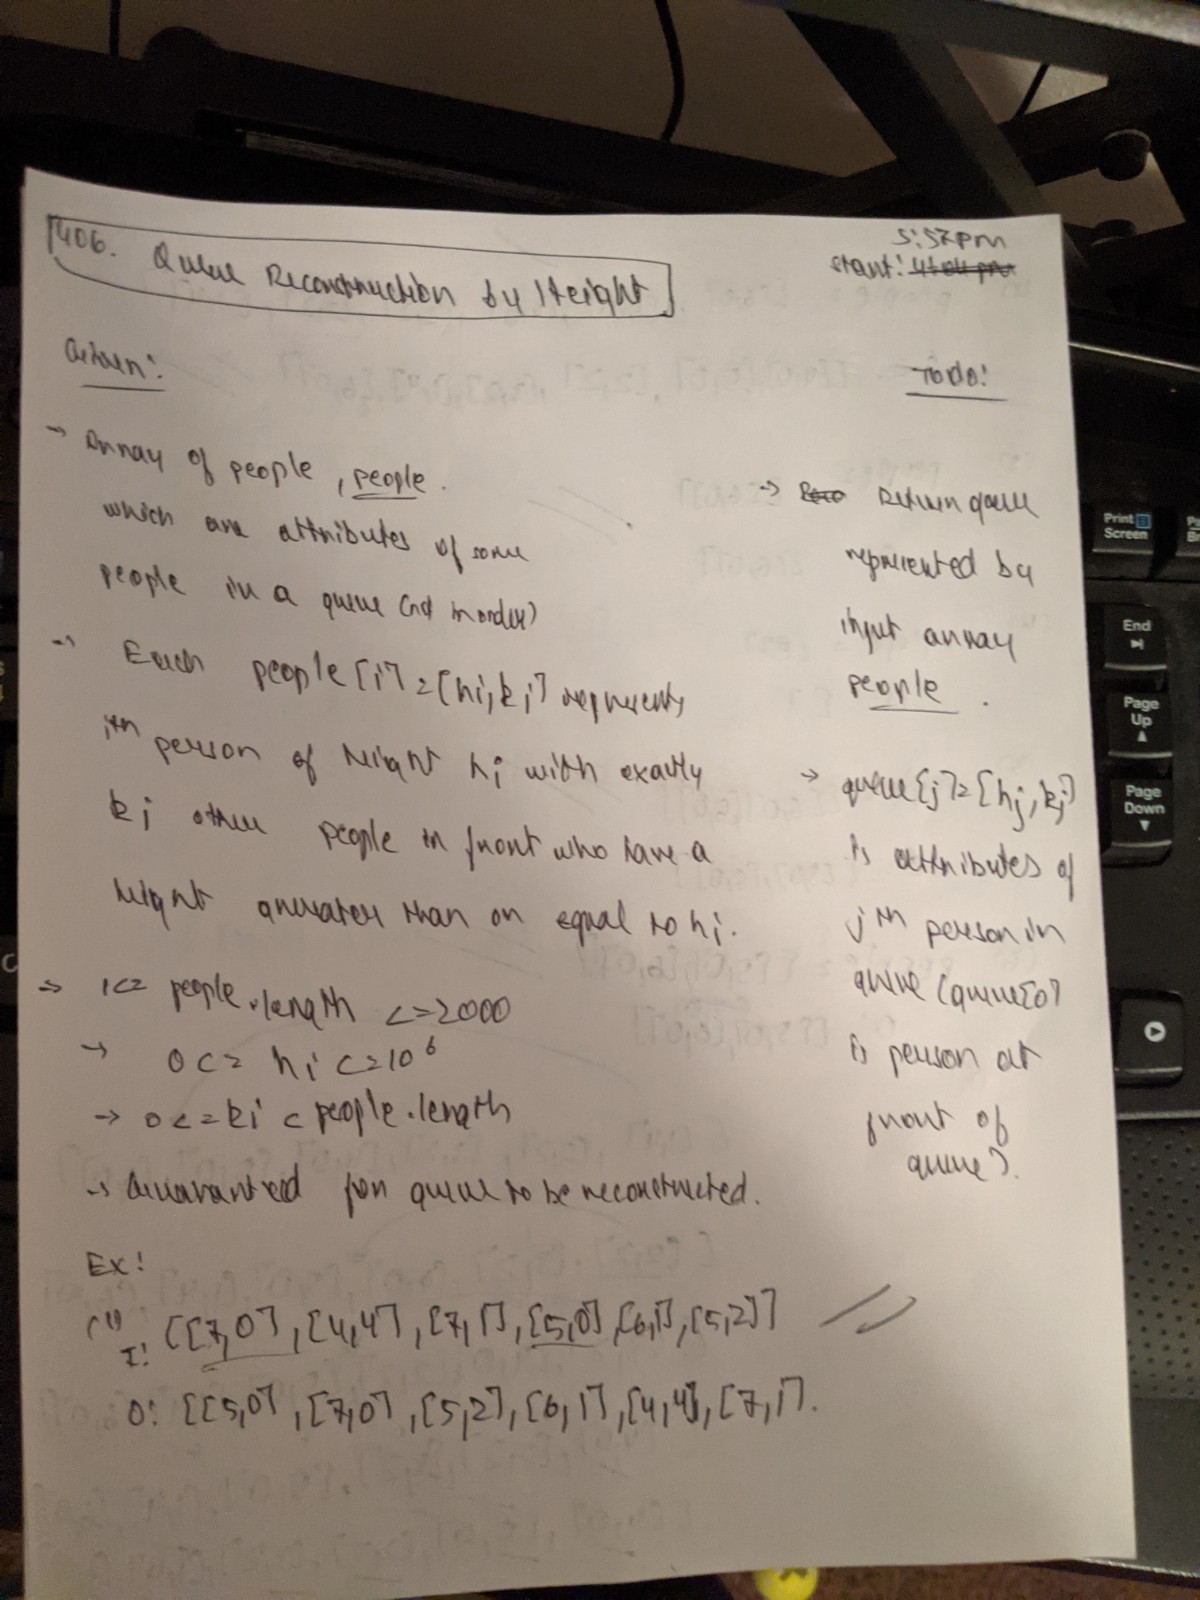 406. Queue Reconstruction by Height
5:57pm
start: 4:04 pm
Given:
Todo:
→ Array of people, people.
which are attributes of some
people in a queue (not in order)
→ Each people[i] = [hi, ki] represents
ith person of height hi with exactly
ki other people in front who have a
height greater than or equal to hi.
→ 1 <= people.length <= 2000
→ 0 <= hi <= 10^6
→ 0 <= ki < people.length
→ Guaranteed for queue to be reconstructed.
→ Return queue
represented by
input array
people.
→ queue[j] = [hj, kj]
is attributes of
jth person in
queue (queue[0]
is person at
front of
queue).
Ex:
(1)
I: [[7,0], [4,4], [7,1], [5,0], [6,1], [5,2]]
O: [[5,0], [7,0], [5,2], [6,1], [4,4], [7,1].
Print
Screen
End
Page
Up
Page
Down